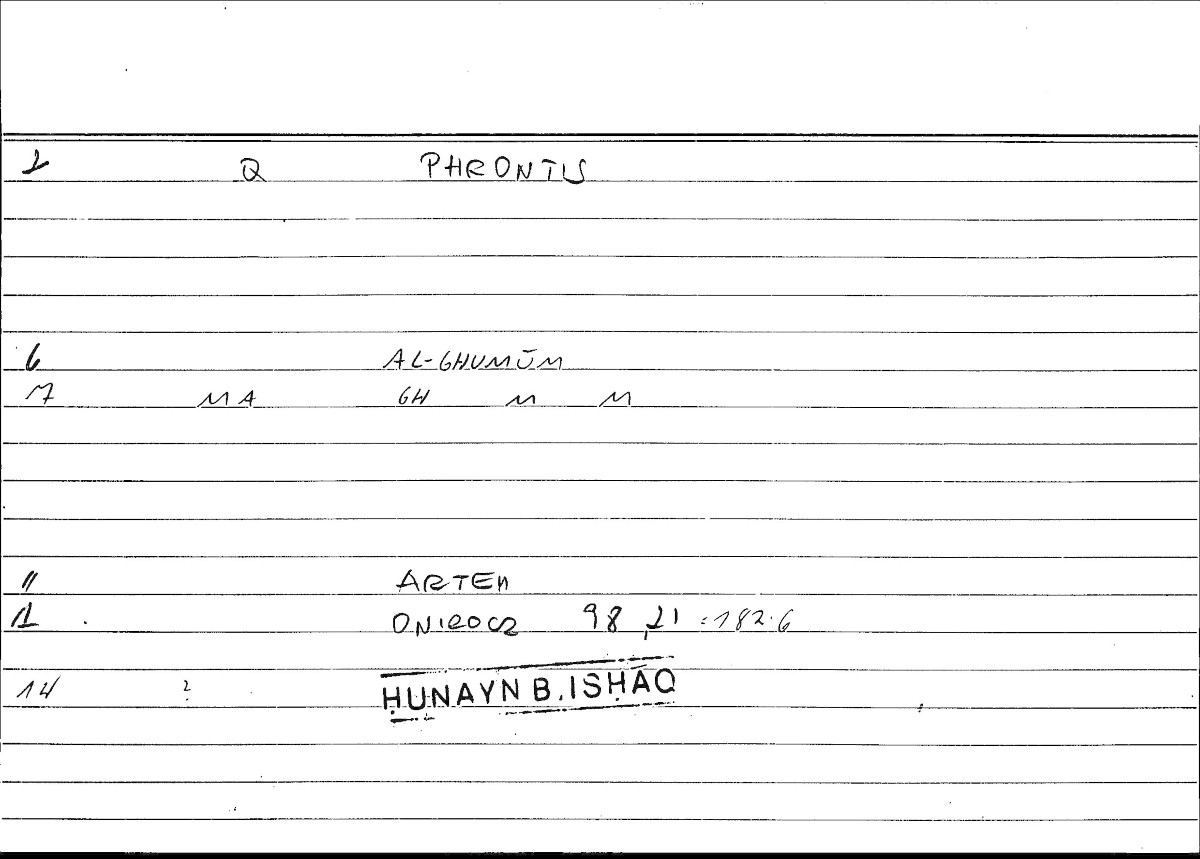 2 Q PHRONTIS
6 AL-GHUMŪM
7 MA GH M M
11 ARTEM
12 ONIROCR 98,21 = 182.6
14 ? ḤUNAYN B. ISḤĀQ